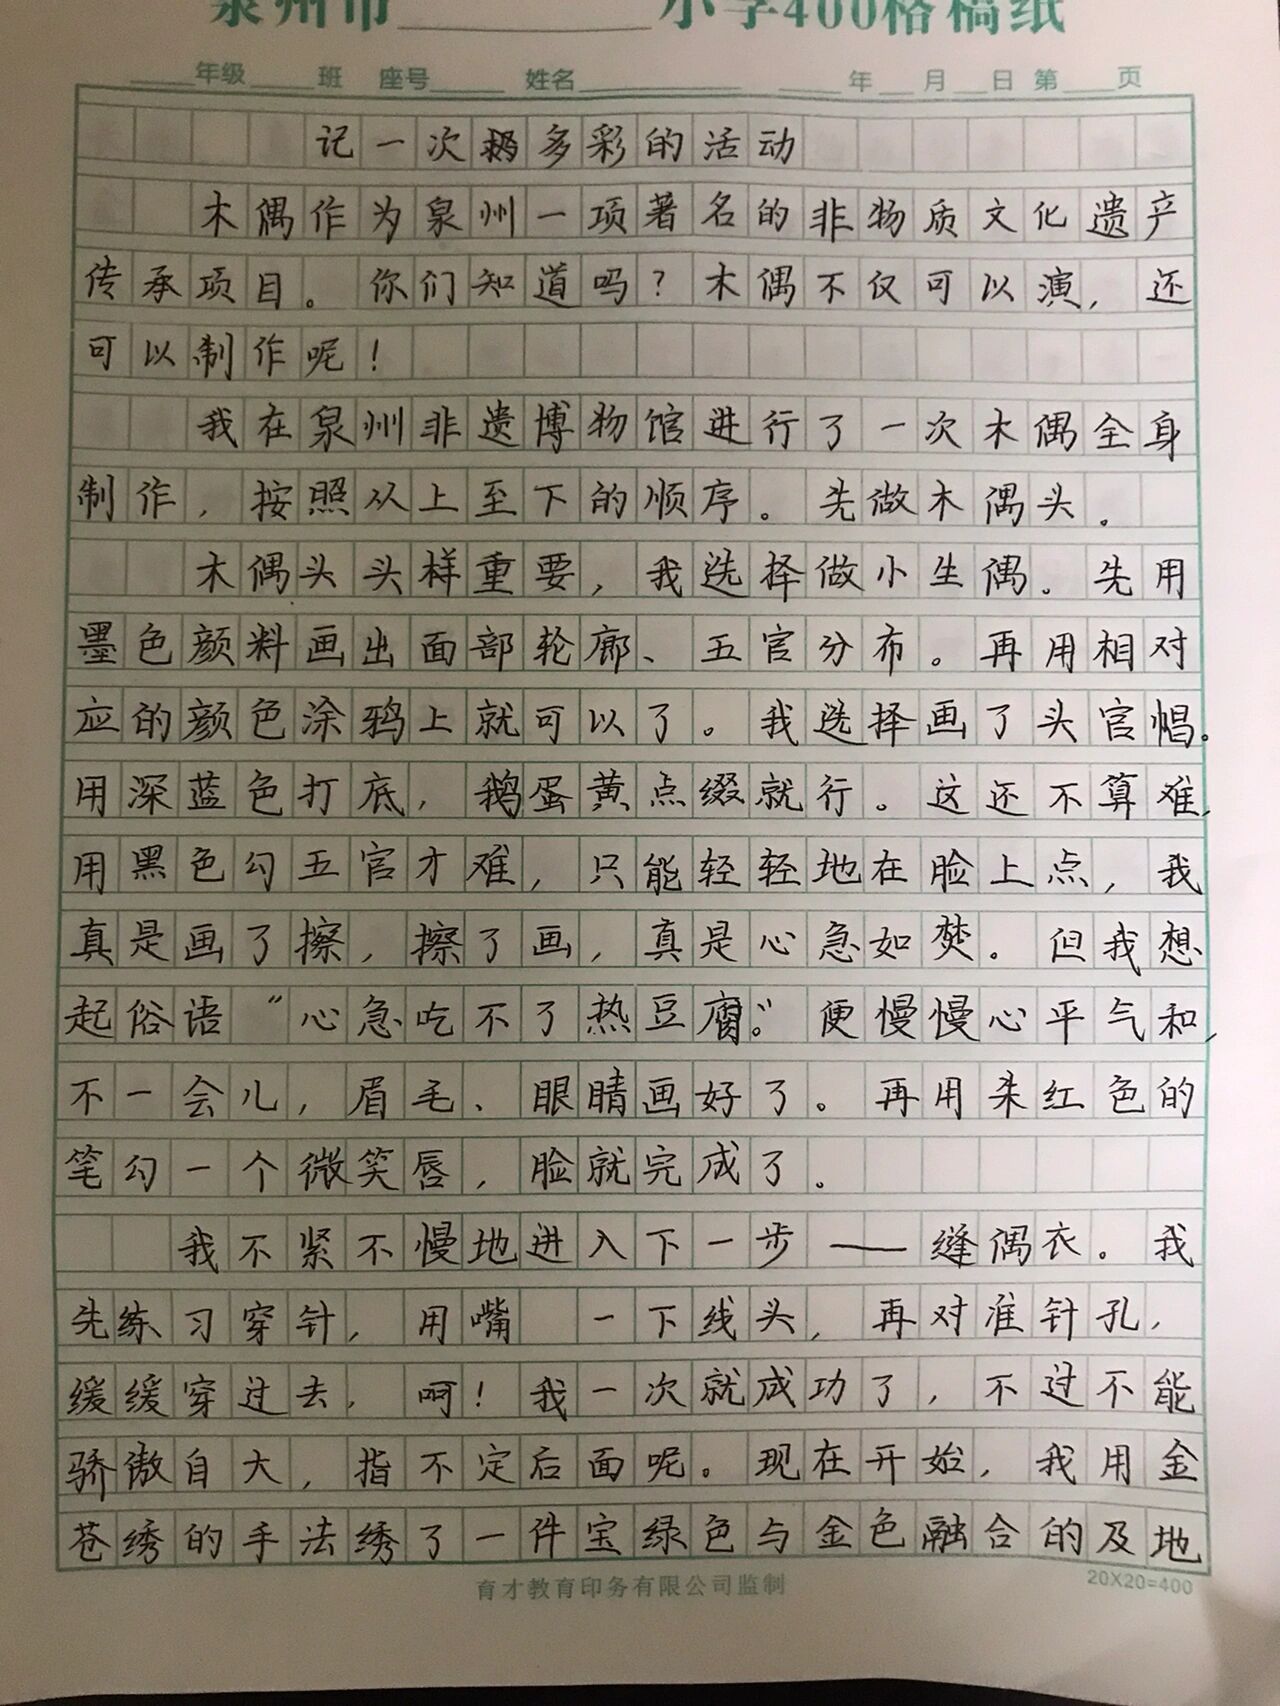 泉州市 小学400格稿纸
年级 班 座号 姓名 年 月 日 第 页
记一次多彩的活动
木偶作为泉州一项著名的非物质文化遗产
传承项目。你们知道吗？木偶不仅可以演，还
可以制作呢！
我在泉州非遗博物馆进行了一次木偶全身
制作，按照从上至下的顺序。先做木偶头。
木偶头头样重要，我选择做小生偶。先用
墨色颜料画出面部轮廓、五官分布。再用相对
应的颜色涂鸦上就可以了。我选择画了头官帽。
用深蓝色打底，鹅蛋黄点缀就行。这还不算难，
用黑色勾五官才难，只能轻轻地在脸上点，我
真是画了擦，擦了画，真是心急如焚。但我想
起俗语“心急吃不了热豆腐。”便慢慢心平气和，
不一会儿，眉毛、眼睛画好了。再用朱红色的
笔勾一个微笑唇，脸就完成了。
我不紧不慢地进入下一步——缝偶衣。我
先练习穿针，用嘴 一下线头，再对准针孔，
缓缓穿过去，呵！我一次就成功了，不过不能
骄傲自大，指不定后面呢。现在开始，我用金
苍绣的手法绣了一件宝绿色与金色融合的及地
育才教育印务有限公司监制 20X20=400